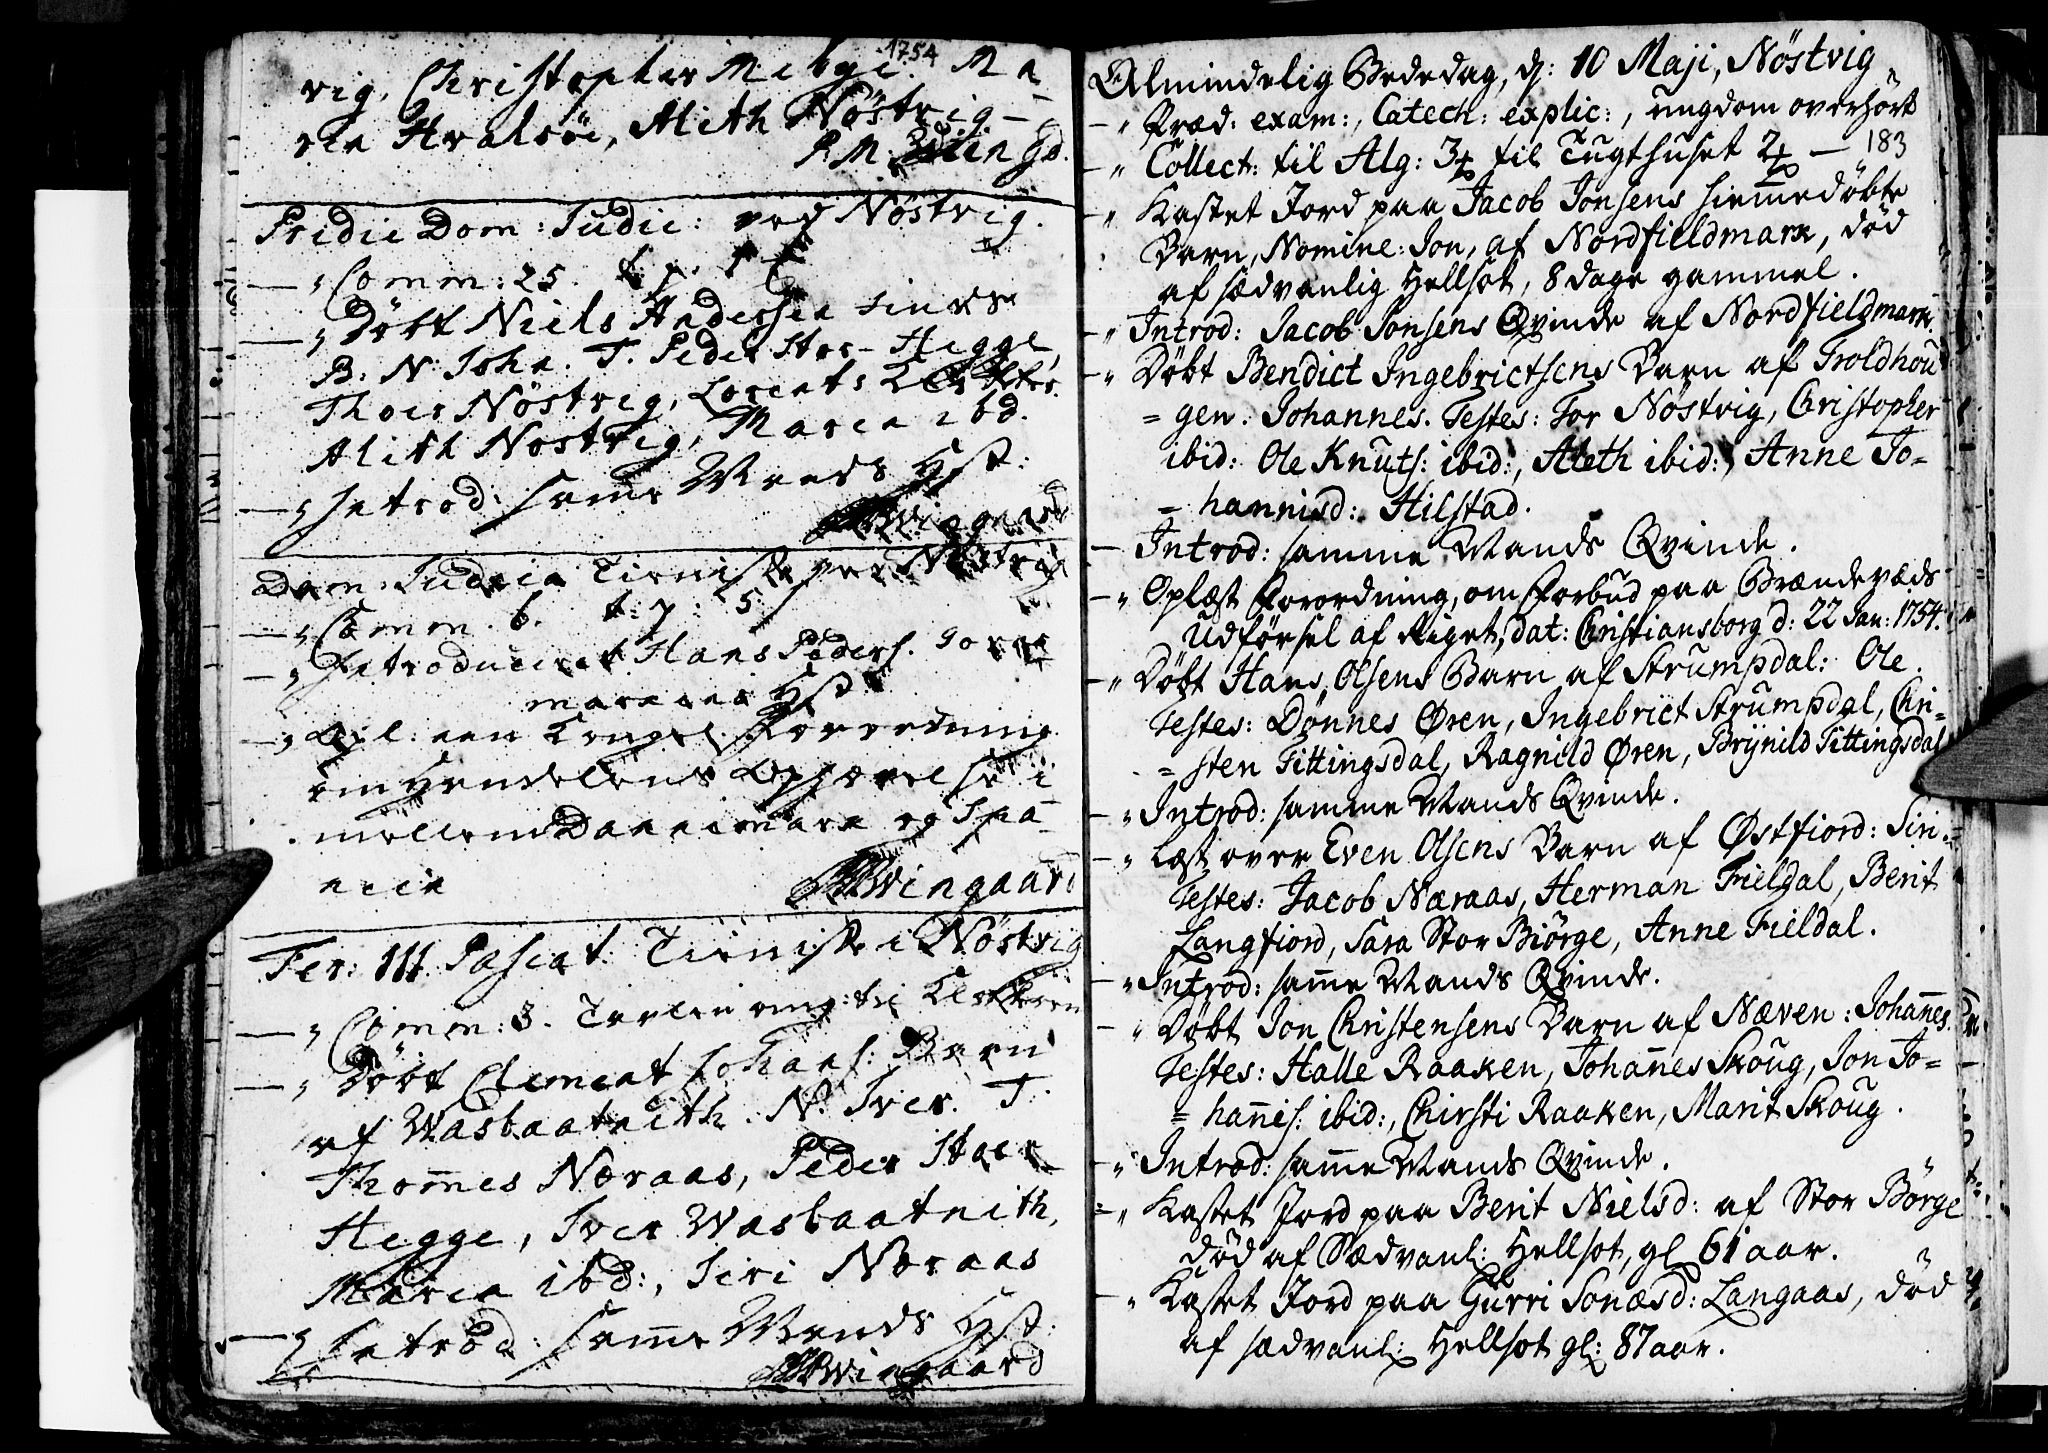 1754
vig, Christopher Mebye. Ma-
ria Hvalsöe, Alith Nöstvig
P. M.
Pridie Dom: Judic: ved Nöstvig.
— „ Comm: 25.
— „ Döbt Niels Andersen
B: N: Joha. T. Peder Stor-Hegge,
Thoer Nöstvig, Lorents
Alith Nöstvig, Maren ibd.
— „ Introd: samme Mands Hst:
Wingaard
Dom: Judica Tieniste ved Nöstvig
— „ Comm. 6. t. p: 5
— „ Introduceret Hans Peders.
Hst:
— „ en Kongel. Forordning
om Handelens Ophævelse i
mellem Dannemark og Spa-
nien
Wingaard
Fer: III Pascat: Tieniste i Nöstvig
— „ Comm: 3.
— „ Döbt Clement Johans: Barn
af Wasbaatneith. N. Iver. T.
Thom̅es Næraas, Peder Stoer
Hegge, Iver Wasbaatneith,
Maren ibd:, Siri Næraas
— „ Introd: sam̅e Mands Hst:
Wingaard
Almindelig Bededag, d: 10 Maji, Nöstvig
— „ Præd: exam:, Catech: explic:, ungdom overhört
— „ Collect: til Alg: 3 til Tugthuset 2 — 183
— „ Kastet Jord paa Jacob Jonsens hiem̅edöbte
Barn, Nomine: Jon, af Nordfieldmark, död
af sædvanlig Hellsot, 8 dage gammel.
— „ Introd: Jacob Jonsens Qvinde af Nordfieldmark
— „ Döbt Bendict Ingebrictsens Barn af Troldhou
= gen: Johannes. Testes: Tor Nöstvig, Christopher
ibid: Ole Knuts: ibid:, Aleth ibid:, Anne Jo-
= hannisd: Hilstad.
— Introd: samme Mands Qvinde.
— „ Oplæst Forordning, om Forbud paa Brændeveds
Udförsel af Riget, dat: Christiansborg d: 22 Jan: 1754.
— „ Döbt Hans Olsens Barn af Strumpdal: Ole.
Testes: Dönnes Øren, Ingebrict Strumpdal, Chri-
= sten Tittingsdal, Ragnild Øren, Brynild Tittingsdal
— „ Introd: samme Mands Qvinde.
— „ Læst over Even Olsens Barn af Østfiord: Siri.
Testes: Jacob Næraas, Herman Fieldal, Berit
Langfiord, Sara Stor Biörge, Anne Fieldal.
— „ Introd: sam̅e Mands Qvinde.
— „ Döbt Jon Christensens Barn af Næven: Johan̅es.
Testes: Halle Raaken, Johan̅es Skoug, Jon Jo=
= han̅is: ibid:, Chirsti Raaken, Marit Skoug.
— „ Introd: sam̅e Mands Qvinde.
= „ Kastet Jord paa Berit Nielsd: af Stor Börge
död af Sædvanl: Hellsot, gl 61 aar.
— „ Kastet Jord paa Gurri Jonæsd: Langaas, död
af sædvanl: Hellsot gl: 87 aar.